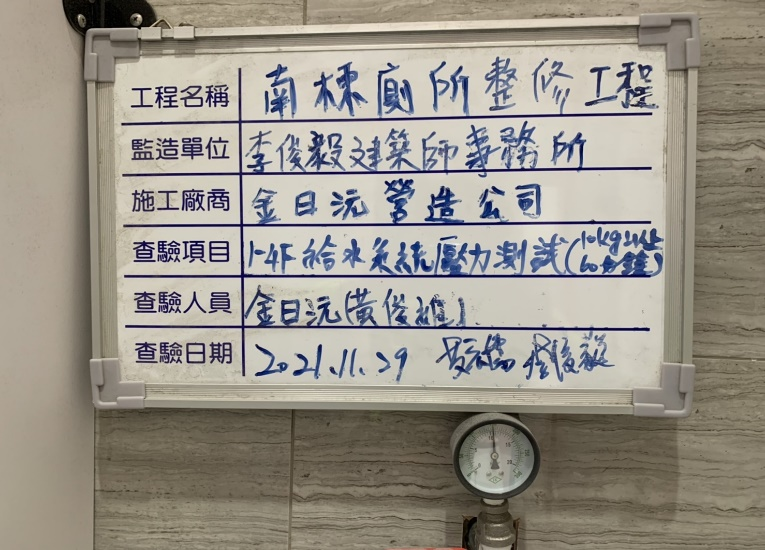 工程名稱 南棟廁所整修工程
監造單位 李俊毅建築師事務所
施工廠商 金日沅營造公司
查驗項目 1-4F給水系統壓力測試(10kg以上60分鐘)
查驗人員 金日沅(黃俊雄)
查驗日期 2021.11.29